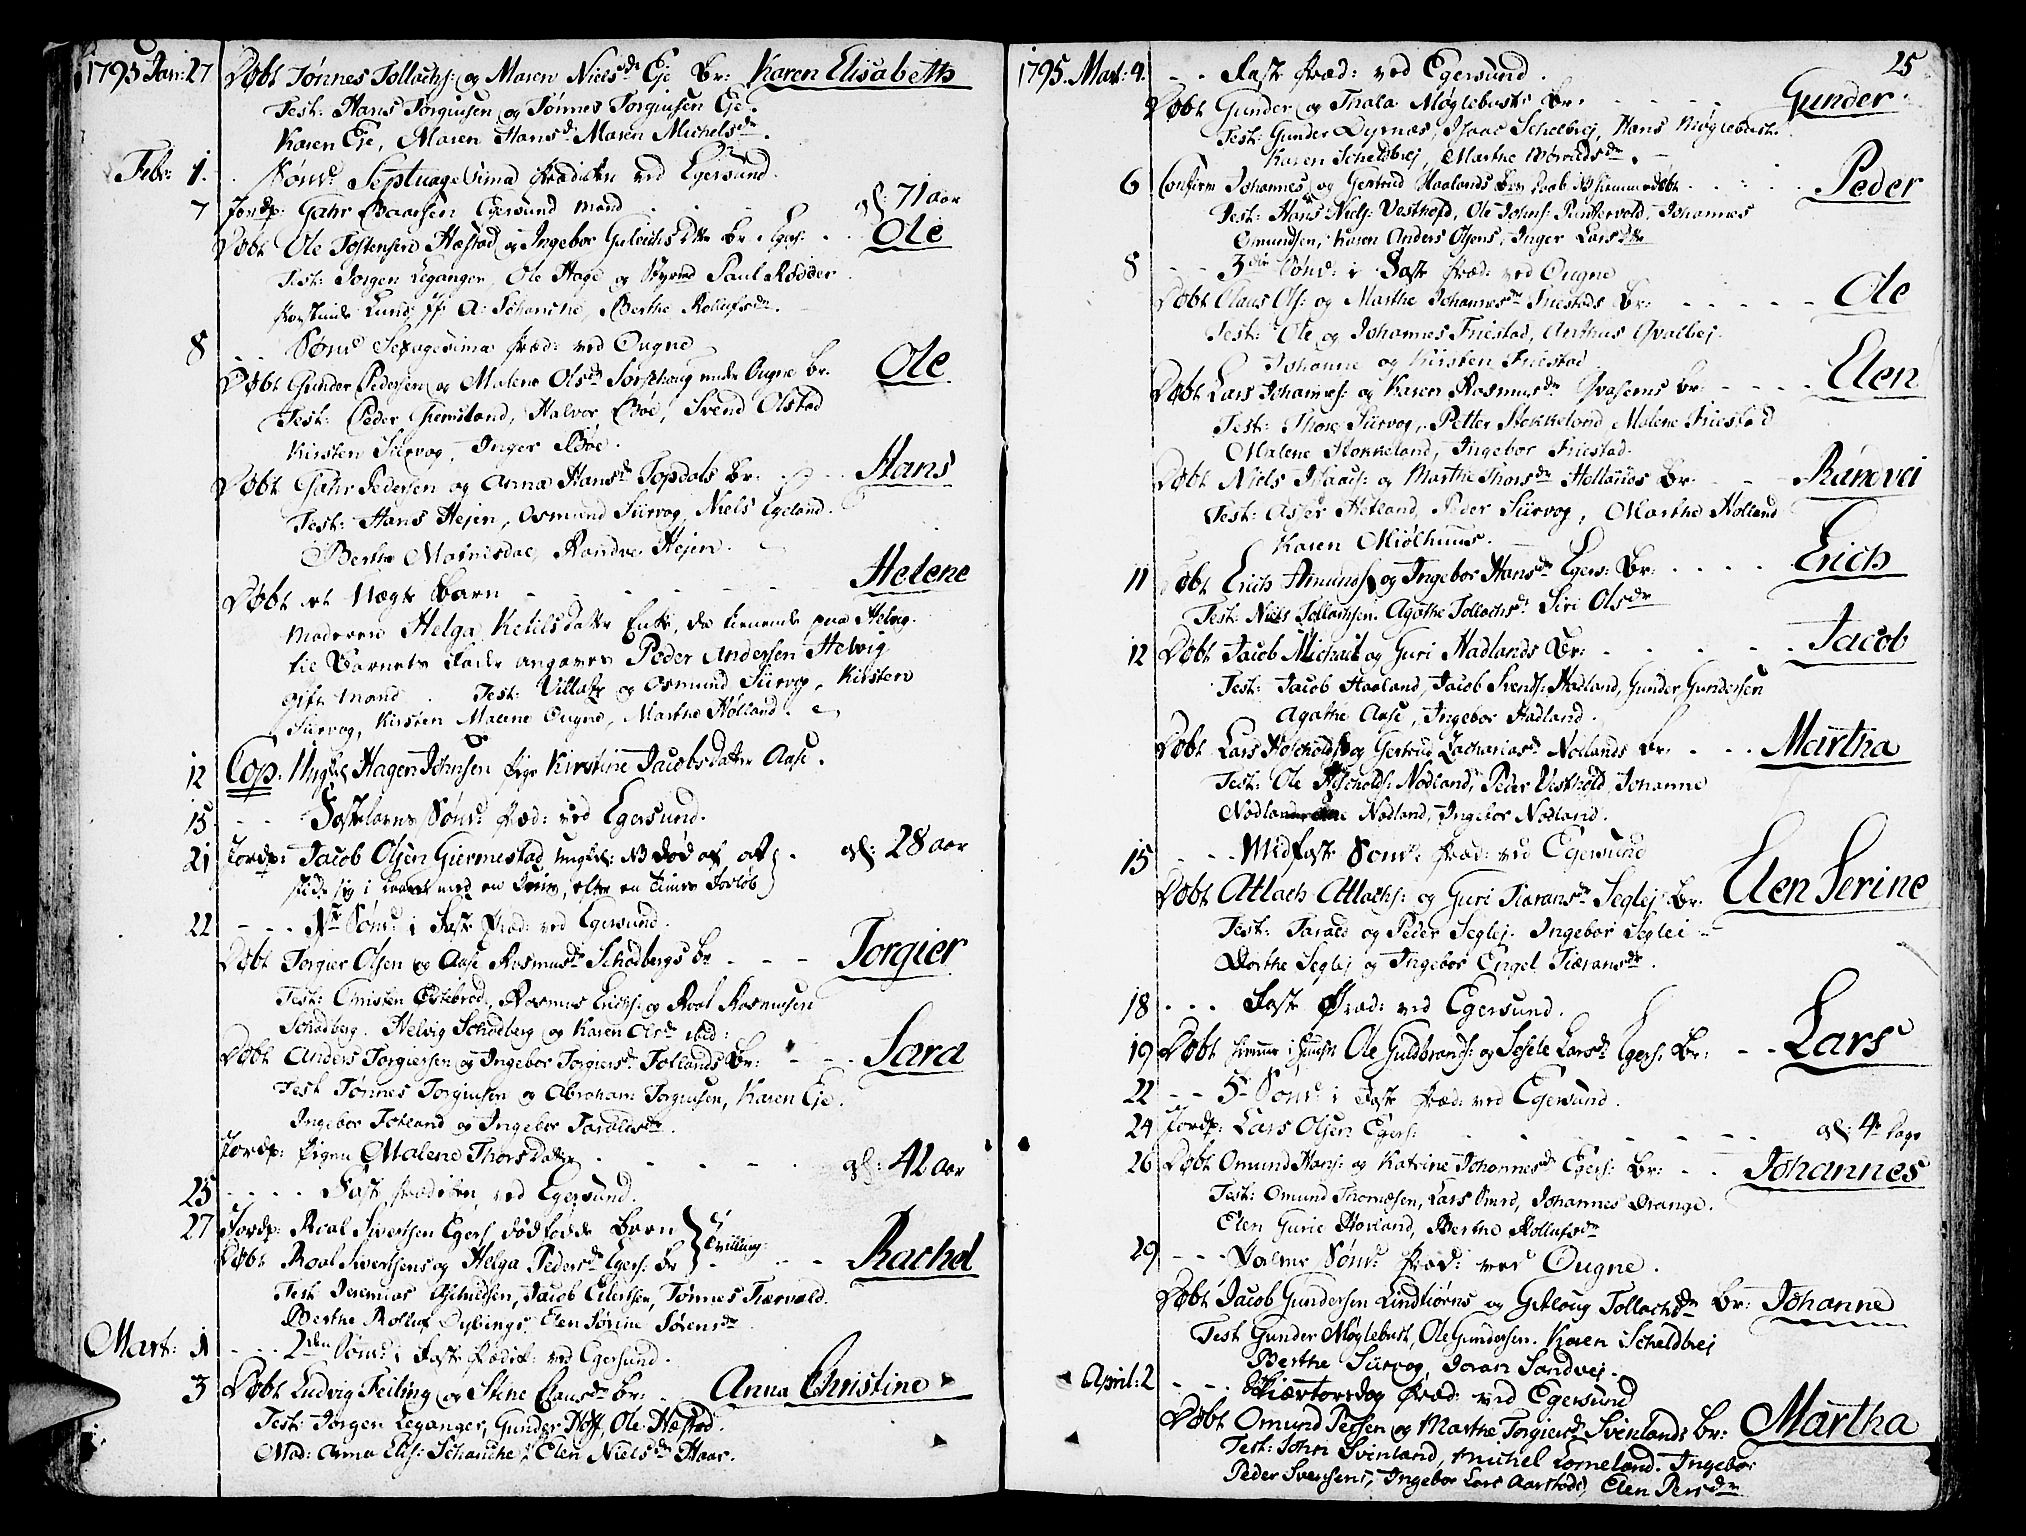 1795 Jan: 27 Døbt Tønnes Tollachs: og Maren Niels dr Eje Br: Karen Elisabeth
Test: Hans Torgiusen og Tønnes Torgiusen Eje.
Karen Eje, Maren Hansdr Maren Michelsdr.
Febr: 1. Sønd: Septuagesima Prædiken ved Egersund.
7 Jordp: Gahr Baarsen Egersund mand gl: 71 aar
Døbt Ole Tostensen Hæstad og Ingebor Gulichs Dtr Br. Egers: Ole
Test: Jorgen Leganger, Ole Hage og Paul Rødder
Lund, A: Schanche, Berthe Rollufsdr.
8 Sønd: Sexagesima Præd: ved Ougne
Døbt Gunder Pedersen og Malene Olsdr Sørschoug under Ougne Br. Ole
Test: Peder Giemland, Halvor Bøe, Svend Olstad
Kirsten Siirvog, Inger Bøe.
Døbt Gahr Pedersen og Anna Hansdr Topdals Br: Hans
Test: Hans Hejen, Osmund Siirvog, Niels Egeland.
Berthe Mavrisdae, Randve Hejen.
Døbt et Uægte Barn Helene
Moderen Helga Ketilsdatter Enke, da tienende paa Helvig.
til Barnets Fader angaves Peder Andersen Helvig
gift mand. Test: Villatz og Osmund Siirvog, Kirsten
Siirvog, Kirsten Malene Ougne, Marthe Hølland.
12 Cop: Ungkl Hagen Johnsen Pige Kirstine Jacobsdatter Aase.
15 Fastelavns Sønd: Præd: ved Egersund.
21 Jordp: Jacob Olsen Giermestad Ungkl: NB død af at gl: 28 aar
sig i med en efter en Times Forløb
22 1ste Sønd: i Faste Præd: ved Egersund.
Døbt Torgier Olsen og Aase Rasmusdr Schadbergs Br Torgier
Test: Christen Østebrod, Rasmus Erichs: og Roal Rasmusen
Schadberg. Helvig Schadberg og Karen Olsdr ibid:
Døbt Anders Torgiersen og Ingebor Torgiersdr Totlands Br: Sara
Test Tønnes Torgiusen og Abraham Torgiusen, Karen Eje.
Ingebor Totland og Ingebor Taraldsdr.
Jordp: Pigen Malene Thorsdatter gl: 42 aar
25 Faste Prædiken ved Egersund.
27 Jordp: Roal Sivertsen Egers: dødfødde Barn Tvilling:
Døbt Roal Sivertsens og Helga Pedersdr Egers: Br Rachel
Test Jeremias Gitmidsen, Jacob Eilertsen, Tønnes Tiærvald.
Berthe Rolluf Dybings, Elen Sørine Sørensdr
Mart: 1 2den Sønd: i Faste Prædik: ved Egersund.
3 Døbt Ludvig Feiling og Stine Clausdr Br: Anna Christine
Test: Jorgen Leganger, Gunder Hoff, Ole Hæstad.
Mad: Anna Elis: Schanche, Elen Nielsdr Haar.
25
1795. Mart: 4. Faste Præd: ved Egersund.
Døbt Gunder og Thala Møglebusts Br: Gunder
Test: Gunder Dyrnæs, Isaac Schelbrej, Hans Møglebust
Karen Scheldbrej, Marthe
6 Confirm Johannes og Gertrud Haalands Barn Daab NB himmedøbt Peder
Test: Hans Niels: Vesthold, Ole Johns: Puntervold, Johannes
Omundsen, Karen Anders Olsens, Inger Lars Dtr
8 3die Sønd: i Faste Præd: ved Ougne
Døbt Claus Ols: og Marthe Johannesdr Friestads Br: Ole
Test: Ole og Johannes Friestad, Anthus Qvalbej.
Johanne og Kirsten Friestad
Døbt Lars Johannes: og Karen Rasmusdr Qvasems Br: Elen
Test: Thore Siirvog, Petter Stokkeland Malene Friestad
Malene Stokkeland, Ingebor Friestad.
Døbt Niels Isaachs: og Marthe Thorsdr Hellands Br: Randvei
Test: Asser Hetland, Peder Siirvog, Marthe Holland
Karen Miølhuus.
11 Døbt Erich Amunds: og Ingebor Hansdr Egers: Br: Erich
Test: Niels Tollachsen. Agathe Tollachsdr Siri Olsdr
12 Døbt Jacob Michael og Guri Hadlands Br: Jacob
Test: Jacob Haaland, Jacob Svends: Hadland, Gunder Gundersen
Agathe Aase, Ingebor Hadland.
Døbt Lars Asholds: og Gertrud Zachariasdr Nodlands Br: Martha
Test: Ole Ascholds: Nodland, Peder Vesthold, Johanne
Nodland Nodland, Ingebor Nodland.
15 Midfaste Sønd: Præd: ved Egersund
Døbt Atlach Atlachs: og Guri Tiæransdr Seglej Br: Elen Serine
Test: Tarald og Peder Seglej. Ingebor Seglei
Dorthe Seglej og Ingebor Engel Tiæransdr.
18 Faste Præd: ved Egersund.
19 Døbt himme i Huuset Ole Guldbrands: og Sesele Larsdr Egers: Br: Lars
22 5te Sønd: i Faste Præd: ved Egersund.
24 Jordp: Lars Olsen Egers: gl: 4re Dage
26 Døbt Omund Hans: og Katrine Johannesdr Egers: Br: Johannes
Test: Omund Thomæsen, Lars Smed, Johannes Drange.
Elen Gurie Hovland, Berthe Rollufsdr
29 Palme Sønd: Præd: ved Ougne.
Døbt Jacob Gundersen Lindtiørns og Gitloug Tollachsdr Br: Johanne
Test Gunder Møglebust, Ole Gundersen. Karen Scheldbrej
Berthe Siirvog, Joran Sandvej.
April: 2 Skiærtorsdag Præd: ved Egersund
Døbt Omund Persen og Marthe Torgiersdr Svinlands Br: Martha
Test: John Svinland, Michel Lomeland. Ingebor
Peder Svensens, Ingebor Lars Aarstads, Elen Persdr